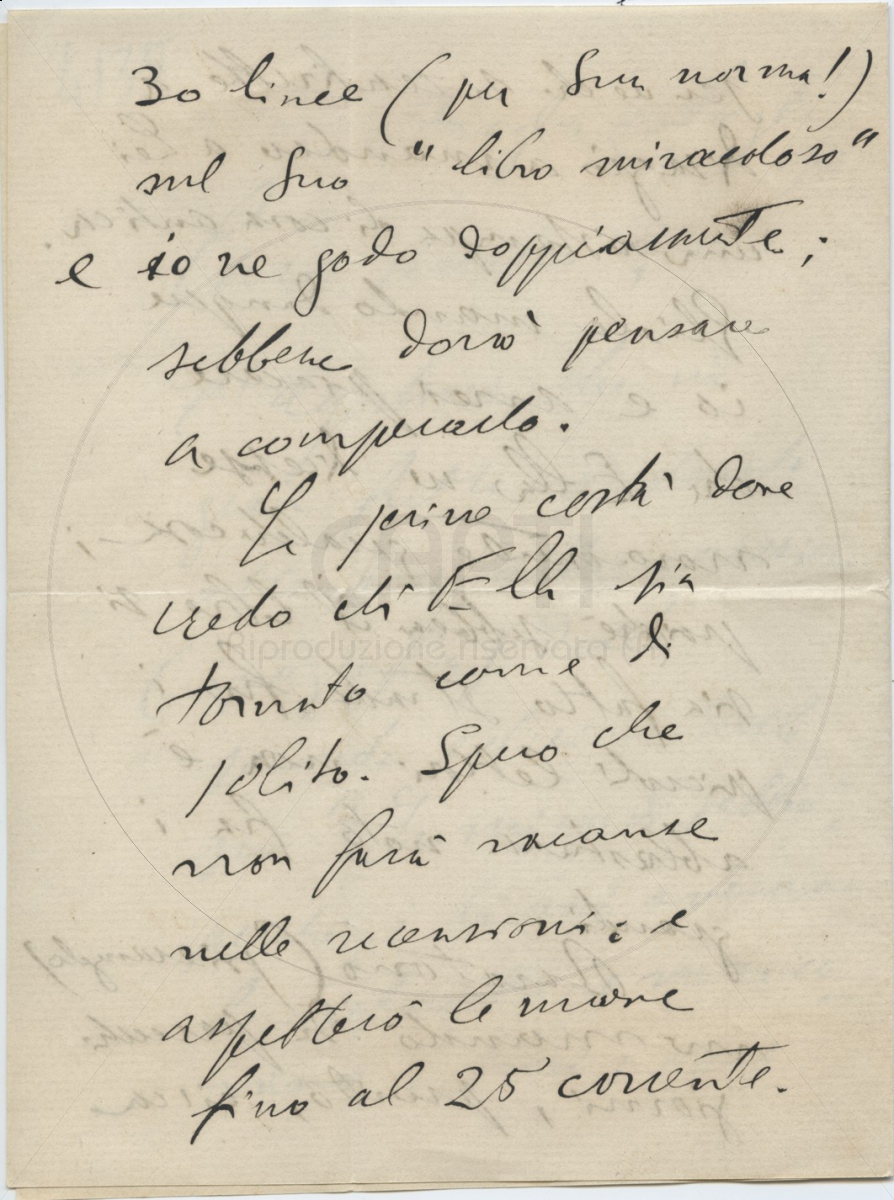 30 linee (per Sua norma!)
sul Suo "libro miracoloso"
e io ne godo doppiamente;
sebbene dovrò pensare
a comperarlo.
Le scrivo costà dove
credo ch'Ella sia
tornato come di
solito. Spero che
non farà vacanze
nelle recensioni; e
aspetterò le nuove
fino al 25 corrente.
Riproduzione riservata